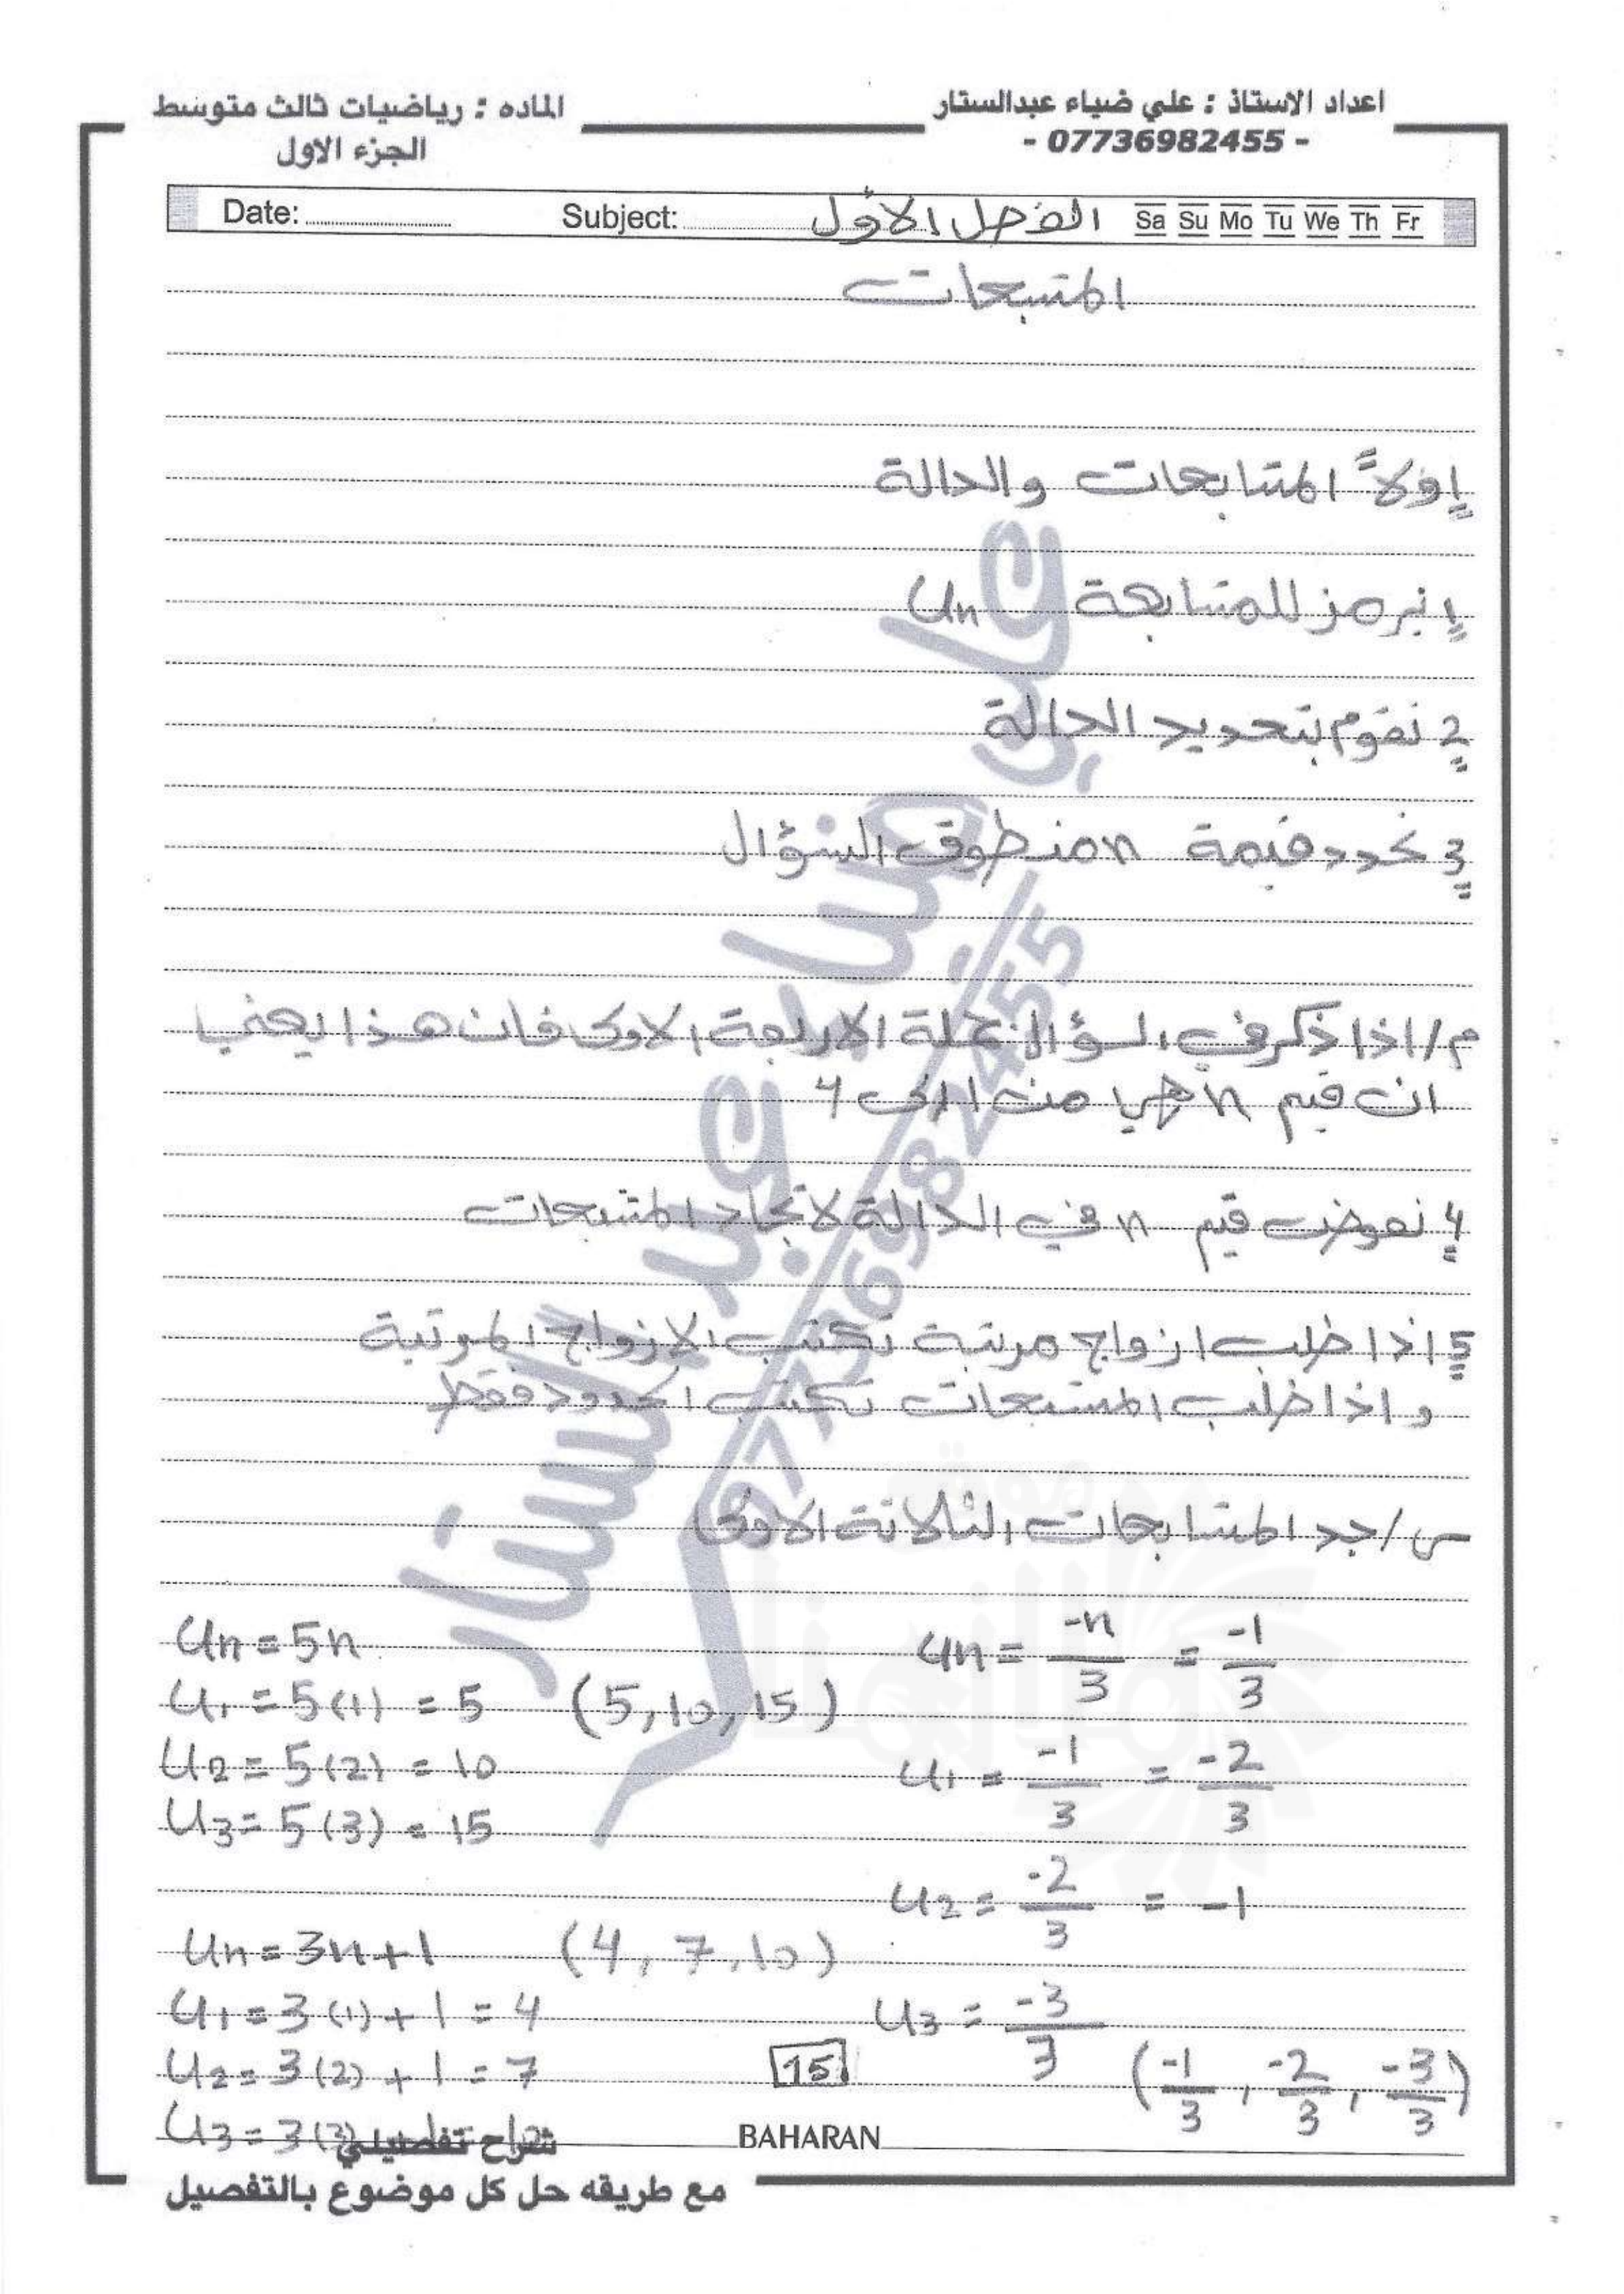 اعداد الاستاذ : علي ضياء عبدالستار
- 07736982455 -
الماده : رياضيات ثالث متوسط
الجزء الاول
Date: Subject: الفصل الاول Sa Su Mo Tu We Th Fr
المتتبعات
اولاً المتتابعات والدالة
1 نرمز للمتتابعة Un
2 نقوم بتحديد الدالة
3 نحدد قيمة n من طوق السؤال
م/ اذا ذكر في السؤال جملة الاربعة الاولى فان هذا يعني
ان قيم n هي من 1 الى 4
4 نعوض قيم n في الدالة لايجاد المتتبعات
5 اذا طلب ازواج مرتبة نكتب الازواج المرتبة
و اذا طلب المتتبعات نكتب الحدود فقط
س/ جد المتتابعات الثلاثة الاولى
Un = 5n
U1 = 5(1) = 5 (5, 10, 15)
U2 = 5(2) = 10
U3 = 5(3) = 15
Un = 3n+1 (4, 7, 10)
U1 = 3(1) + 1 = 4
U2 = 3(2) + 1 = 7
U3 = 3(3)
Un = -n/3 = -1/3
U1 = -1/3 = -2/3
U2 = -2/3 = -1
U3 = -3/3
(-1/3, -2/3, -3/3)
15
BAHARAN
شراح تفصيلي
مع طريقه حل كل موضوع بالتفصيل
علي ضياء عبد الستار
07736982455